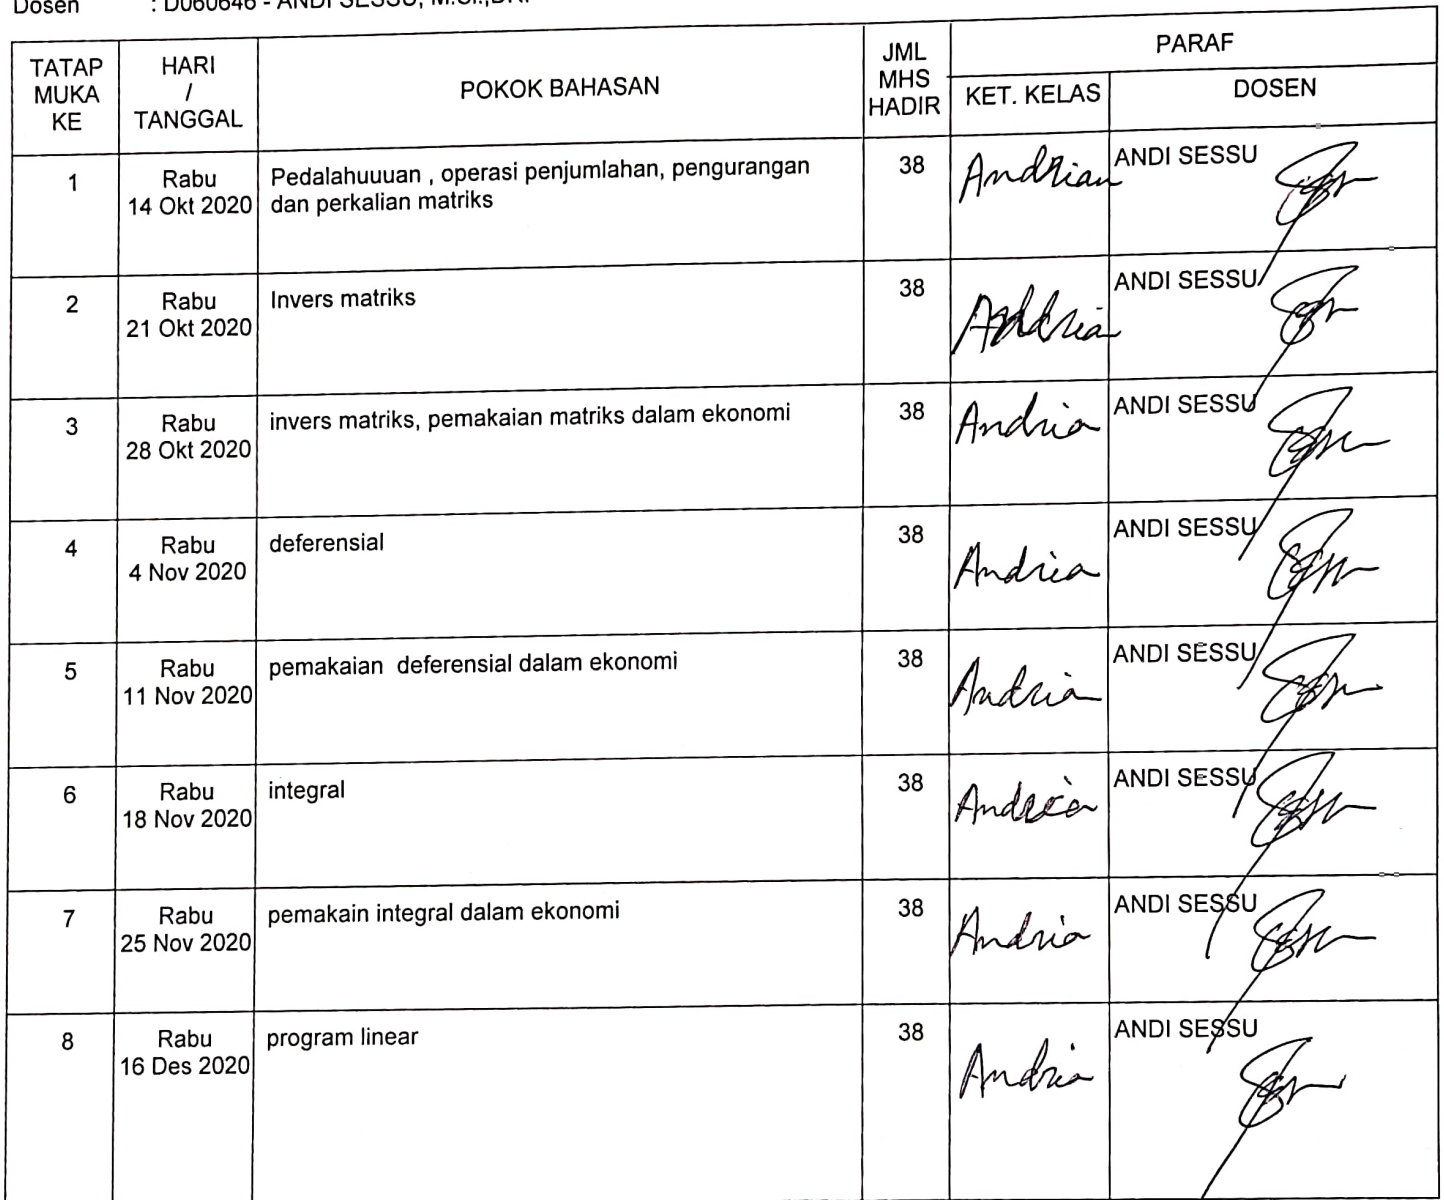 Dosen : D060646 - ANDI SESSU, M.Si.,DR.
TATAP MUKA KE
HARI / TANGGAL
POKOK BAHASAN
JML MHS HADIR
PARAF
KET. KELAS
DOSEN
1
Rabu
14 Okt 2020
Pedalahuuuan , operasi penjumlahan, pengurangan
dan perkalian matriks
38
Andrian
ANDI SESSU
2
Rabu
21 Okt 2020
Invers matriks
38
ANDI SESSU
3
Rabu
28 Okt 2020
invers matriks, pemakaian matriks dalam ekonomi
38
Andria
ANDI SESSU
4
Rabu
4 Nov 2020
deferensial
38
Andria
ANDI SESSU
5
Rabu
11 Nov 2020
pemakaian  deferensial dalam ekonomi
38
Andria
ANDI SESSU
6
Rabu
18 Nov 2020
integral
38
Andria
ANDI SESSU
7
Rabu
25 Nov 2020
pemakain integral dalam ekonomi
38
Andria
ANDI SESSU
8
Rabu
16 Des 2020
program linear
38
Andria
ANDI SESSU